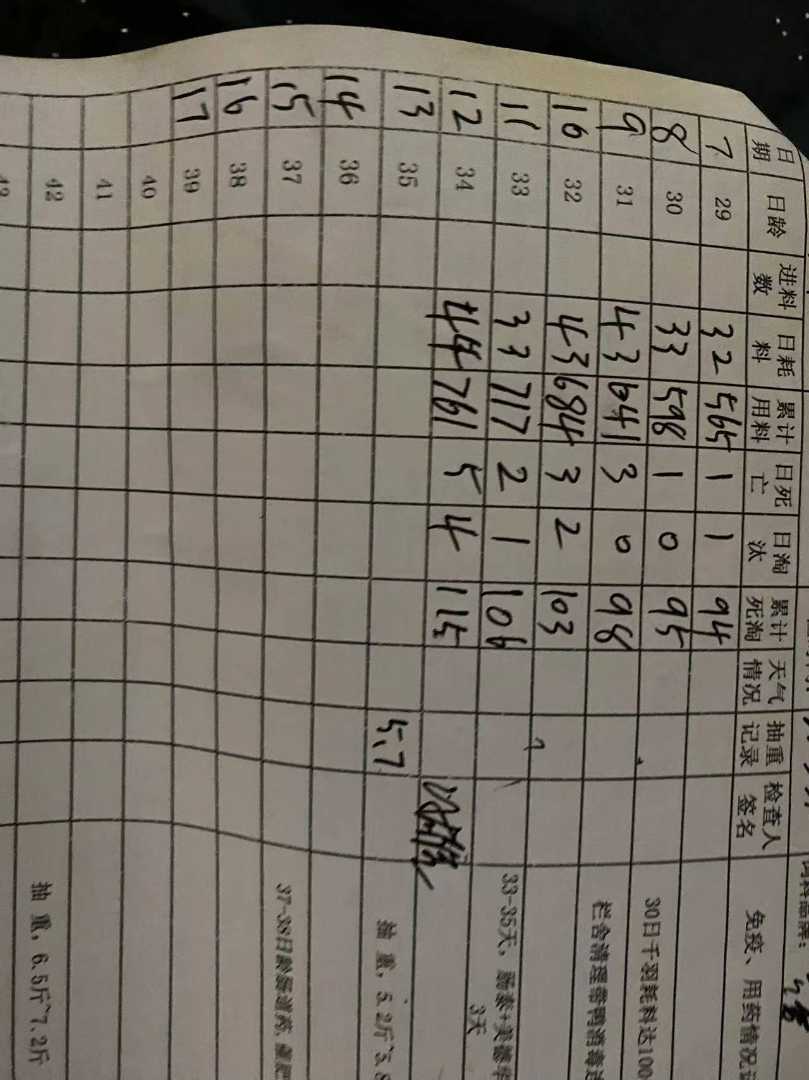 日期 日龄 进料数 日耗料 累计用料 日死亡 日淘汰 累计死淘 天气情况 抽重记录 检查人签名 免疫、用药情况
7 29 32 565 1 1 94
8 30 33 598 1 0 95 30日千羽耗料达100
9 31 43 641 3 0 98 栏舍清理带鸭消毒
10 32 43 684 3 2 103
11 33 33 717 2 1 106 33-35天,肠泰+美德 3天
12 34 44 761 5 4 115
13 35 5.7 抽重,5.2斤~5.8
14 36
15 37 37-38日龄肠道药,
16 38
17 39
40
41
42 抽重,6.5斤~7.2斤
43